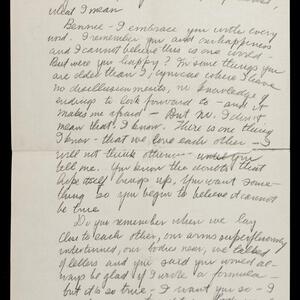 what I mean
Bennie - I embrace you with every
word. I remember you and our happiness
and I cannot believe this is one world -
But were you happy? In some things you
are older than I; cynicism where I have
no disillusionments, no knowledge of
endings to look forward to - and it
makes me afraid - But no. I don't
mean that, I know. There is one thing
I know - that we love each other - I
will not think otherwise unless you
tell me. You know the doubts that
hope itself brings up, You want some-
thing so you begin to believe it cannot
be true
Do you remember when we lay
close to each other, our arms
intertwined, our bodies near, we talked
of letters and you said you would al-
ways be glad if I wrote a formula -
but it is so true, I want you so - I